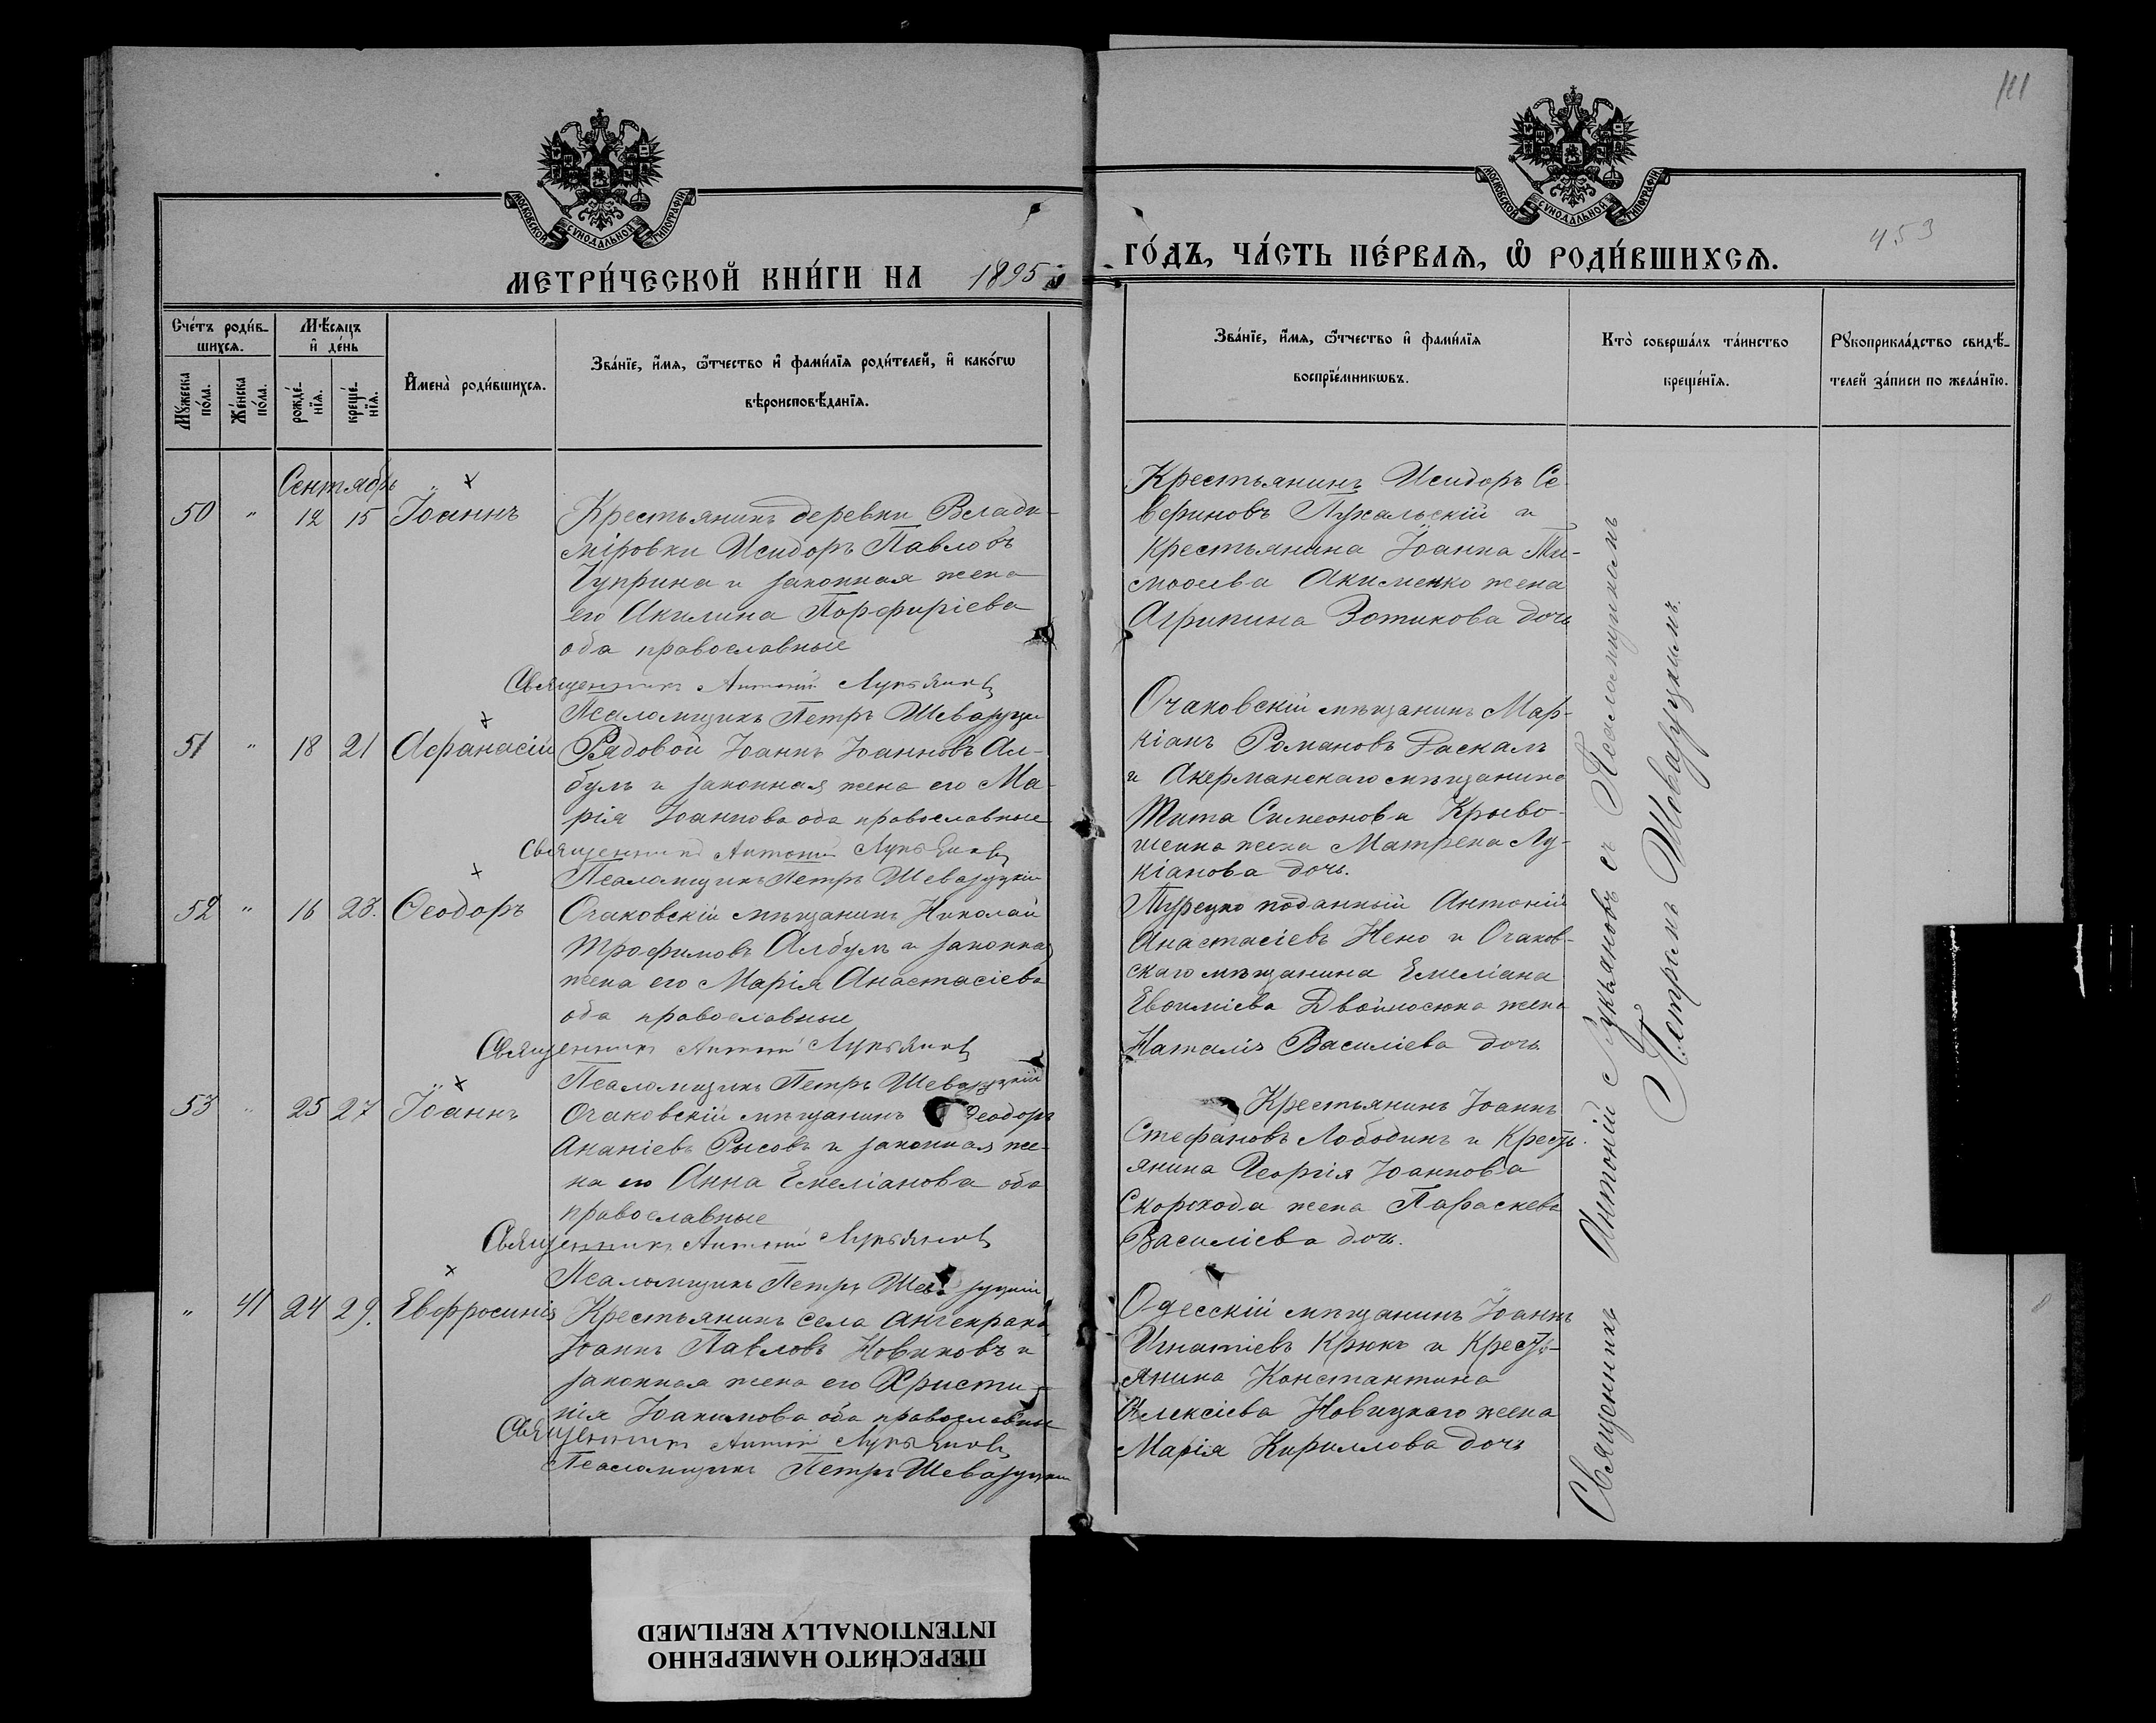 111
453
МОСКОВСКОЙ СѴНОДАЛЬНОЙ ТИПОГРАФІИ
МОСКОВСКОЙ СѴНОДАЛЬНОЙ ТИПОГРАФІИ
МЕТРИ́ЧЕСКОЙ КНИ́ГИ НА 1895
ГО́ДЪ, ЧА́СТЬ ПЕ́РВАѦ, Ѡ҆ РОДИ́ВШИХСѦ.
Сче́тъ роди́в-
шихсѧ.
Мꙋ́жеска
по́ла.
Же́нска
по́ла.
Мѣ́сѧцъ
и҆ де́нь
рожде́-
нїѧ.
креще́-
нїѧ.
И҆мена̀ роди́вшихсѧ.
Зва́нїе, и҆́мѧ, ѻ҆́тчество и҆ фами́лїѧ роди́телей, и҆ како́гѡ
вѣроисповѣ́данїѧ.
Зва́нїе, и҆́мѧ, ѻ҆́тчество и҆ фами́лїѧ
воспрїе́мникѡвъ.
Кто̀ соверша́лъ та́инство
креще́нїѧ.
Рꙋкоприкла́дство свидѣ́-
телей за́писи по жела́нїю.
Сентябрь
50 " 12 15 Іоаннъ
Крестьянинъ деревни Влади-
міровки Исидоръ Павловъ
Чуприна и законная жена
его Акилина Порфиріева
оба православные
Священникъ Антоній Лукьяновъ
Псаломщикъ Петръ Шевазуцкій
Крестьянинъ Исидоръ Се-
вериновъ Пухальскій и
Крестьянина Іоанна Ти-
моѳеева Акименко жена
Агрипина Зотикова дочь
51 " 18 21 Аѳанасій
Рядовой Іоаннъ Іоанновъ Ал-
булъ и законная жена его Ма-
рія Іоаннова оба православные
Священникъ Антоній Лукьяновъ
Псаломщикъ Петръ Шевазуцкій
Очаковскій мѣщанинъ Мар-
кіанъ Романовъ Раскалъ
и Акерманскаго мѣщанина
Тита Симеонова Криво-
шеина жена Матрена Лу-
кіанова дочь.
52 " 16 23. Ѳеодоръ
Очаковскій мѣщанинъ Николай
Трофимовъ Албулъ и законная
жена его Марія Анастасіева
оба православные
Священникъ Антоній Лукьяновъ
Псаломщикъ Петръ Шевазуцкій
Турецко поданный Антоній
Анастасіевъ Нено и Очаков-
скаго мѣщанина Емеліана
Евѳиміева Двойносюка жена
Наталія Василіева дочь
53 " 25 27 Іоаннъ
Очаковскій мѣщанинъ Ѳеодоръ
Ананіевъ Рысовъ и законная же-
на его Анна Емеліанова оба
православные
Священникъ Антоній Лукьяновъ
Псаломщикъ Петръ Шевазуцкій
Крестьянинъ Іоаннъ
Стефановъ Лободинъ и Кресть-
янина Георгія Іоаннова
Скорохода жена Параскева
Василіева дочь.
" 41 24 29. Евфросинія
Крестьянинъ села Анчекрака
Іоаннъ Павловъ Новиковъ и
законная жена его Христи-
нія Іоакимова оба православные
Священникъ Антоній Лукьяновъ
Псаломщикъ Петръ Шевазуцкій
Одесскій мѣщанинъ Іоаннъ
Игнатіевъ Крюкъ и Кресть-
янина Константина
Алексіева Новицкаго жена
Марія Кириллова дочь
Священникъ Антоній Лукьяновъ съ Псаломщикомъ
Петромъ Шевазуцкимъ.
ПЕРЕСНЯТО НАМЕРЕННО
INTENTIONALLY REFILMED